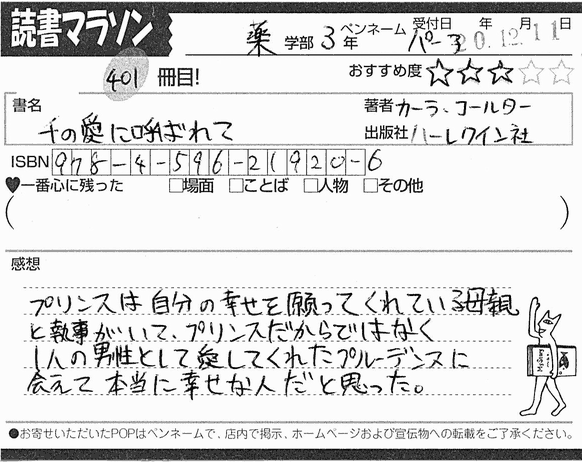 読書マラソン
薬 学部 3 年 ペンネーム パーマ 受付日 年 月 日
20.12.11
401 冊目!
おすすめ度 ★★★☆☆
書名
千の愛に呼ばれて
著者 カーラ.コールター
出版社 ハーレクイン社
ISBN 978-4-596-21920-6
♥一番心に残った □場面 □ことば □人物 □その他
( )
感想
プリンスは自分の幸せを願ってくれている母親
と執事がいて、プリンスだからではなく
1人の男性として愛してくれたプルーデンスに
会えて本当に幸せな人だと思った。
●お寄せいただいたPOPはペンネームで、店内で掲示、ホームページおよび宣伝物への転載をご了承ください。